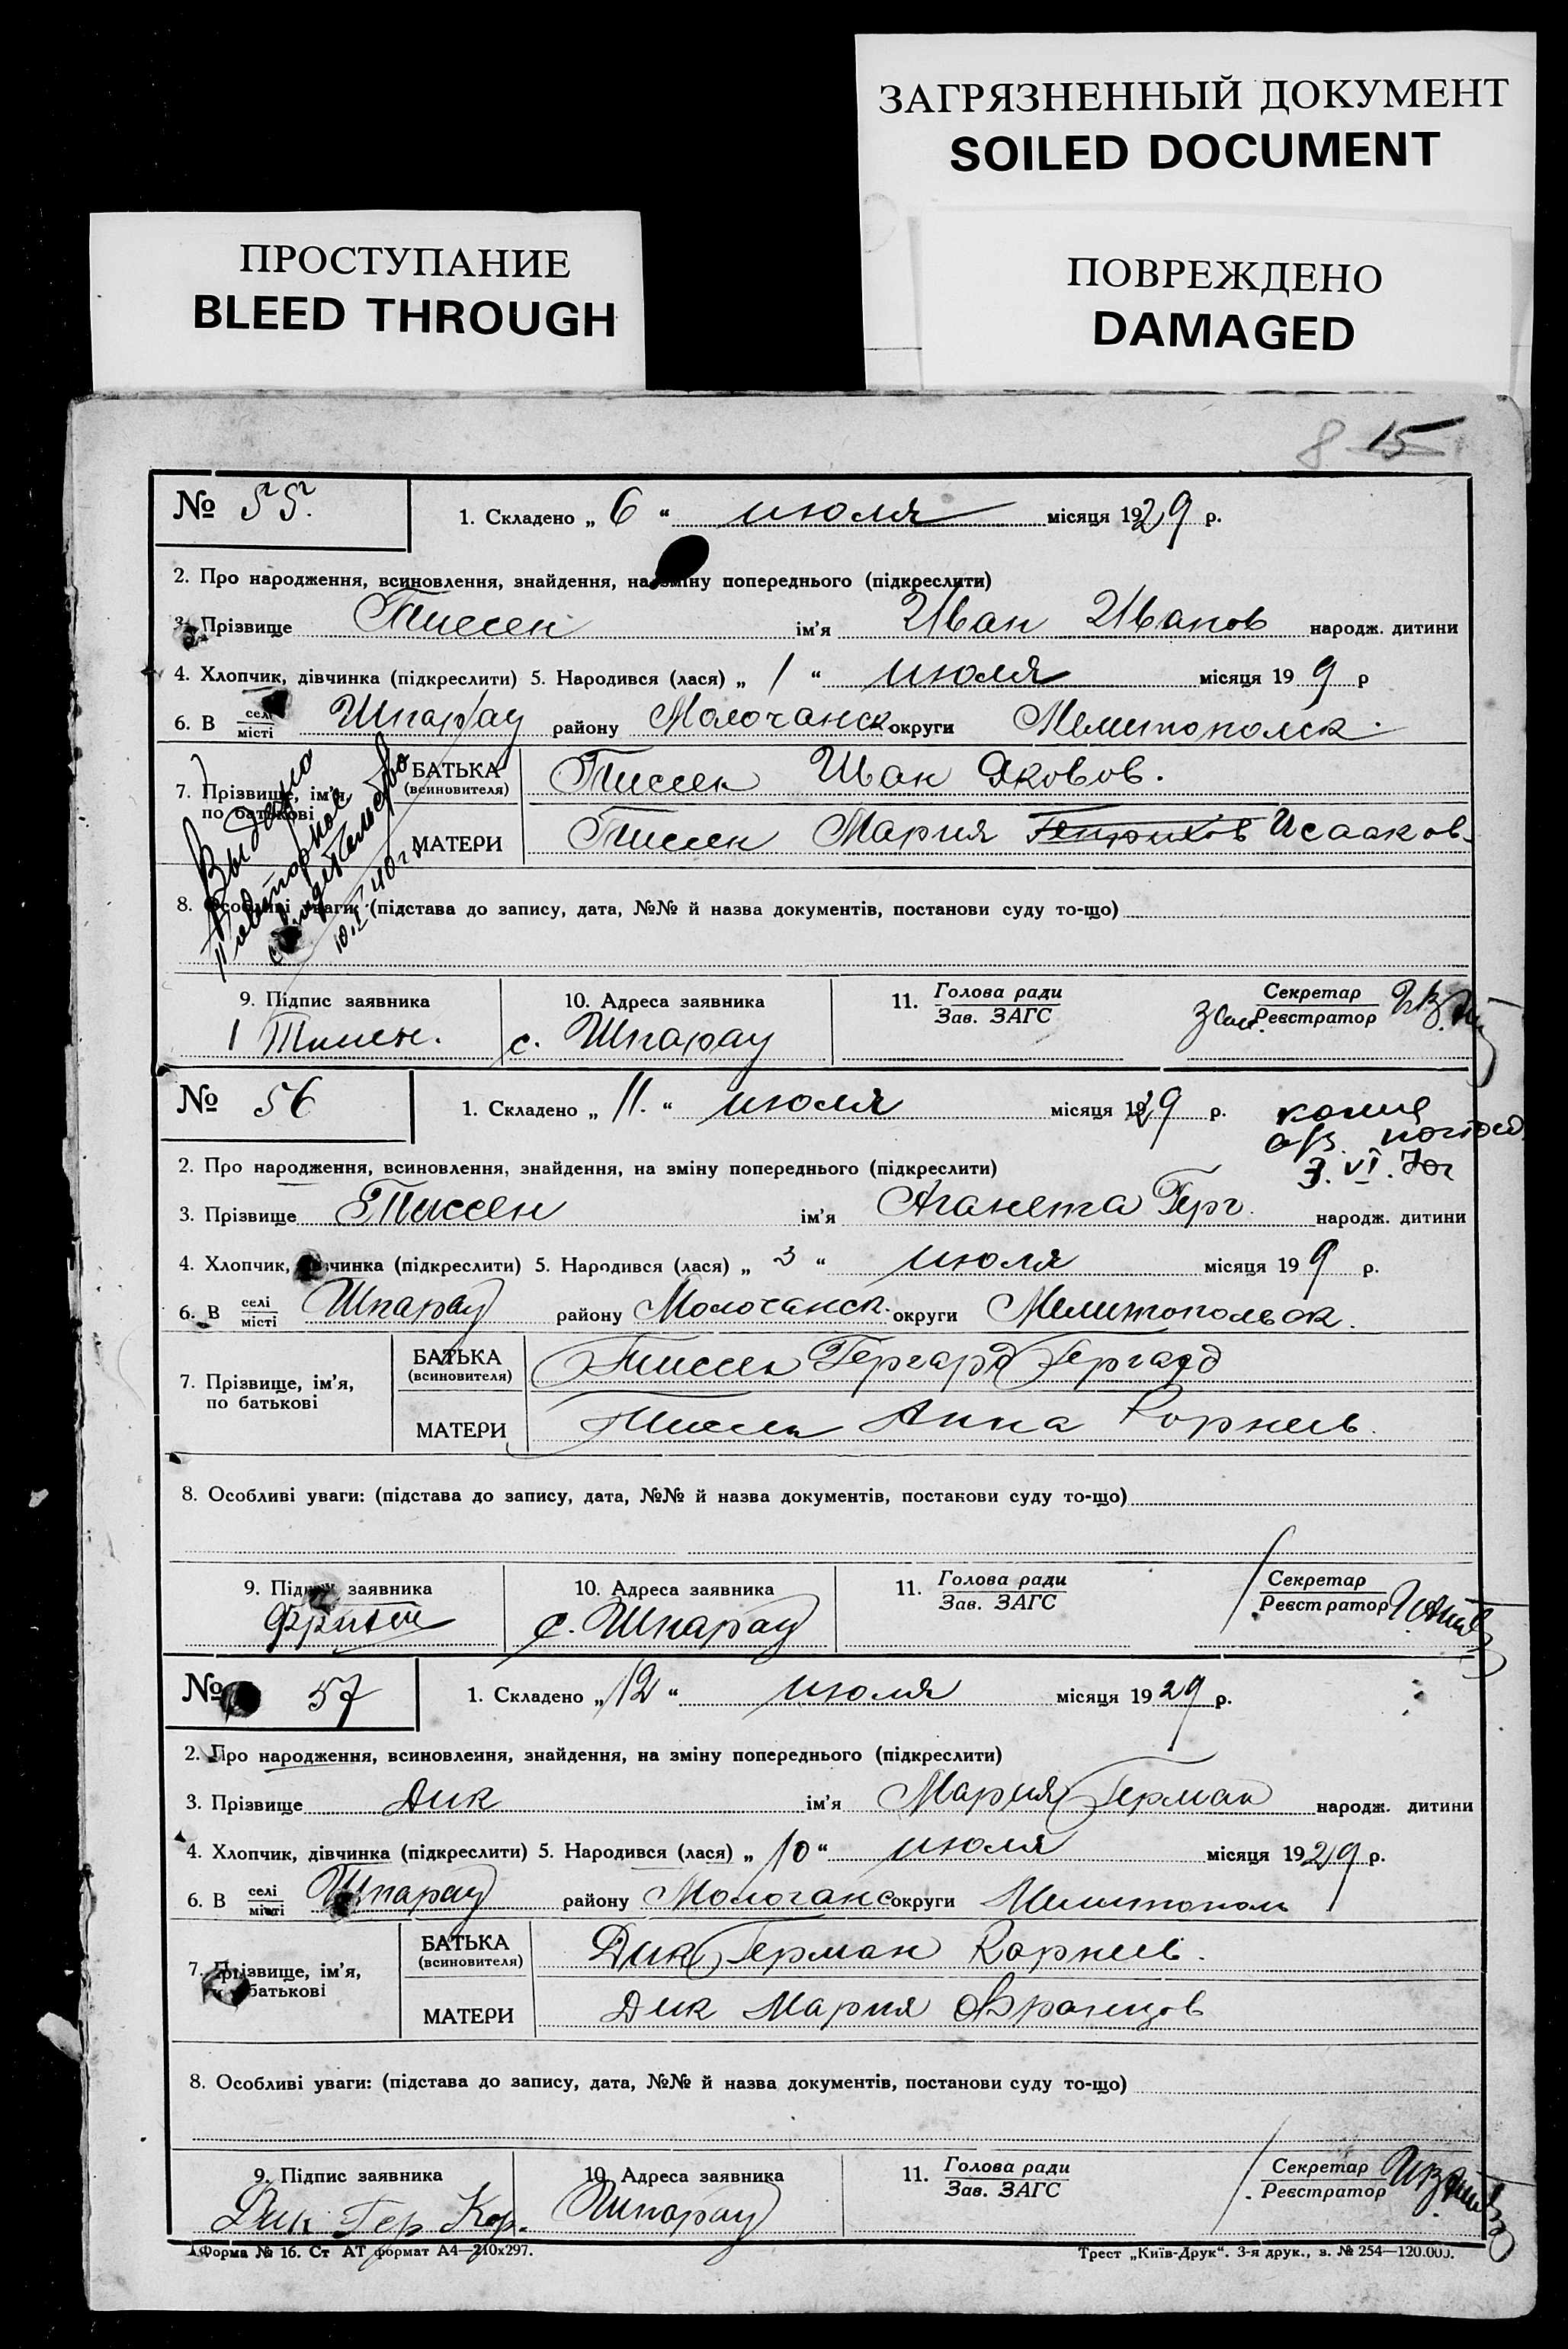 ЗАГРЯЗНЕННЫЙ ДОКУМЕНТ
SOILED DOCUMENT
ПРОСТУПАНИЕ
BLEED THROUGH
ПОВРЕЖДЕНО
DAMAGED
8 15
№ 55. 1. Складено „ 6 “ июля місяця 1929 р.
2. Про народження, всиновлення, знайдення, на зміну попереднього (підкреслити)
3. Прізвище Тиссен ім'я Иван Иванов народж. дитини
4. Хлопчик, дівчинка (підкреслити) 5. Народився (лася) „ 1 “ июля місяця 19 9 р
6. В селі/місті Шпарау району Молочанск округи Мелитополск.
7. Прізвище, ім'я, по батькові
БАТЬКА (всиновителя) Тиссен Иван Яковов.
МАТЕРИ Тиссен Мария Генрихов Исааков.
Выдано
повторное
свидетельство
8. Особливі уваги: (підстава до запису, дата, №№ й назва документів, постанови суду то-що)
9. Підпис заявника 10. Адреса заявника 11. Голова ради Секретар
Зав. ЗАГС Реєстратор
с. Шпарау
№ 56 1. Складено „ 11. “ июля місяця 1929 р.
копия
3. VI.
2. Про народження, всиновлення, знайдення, на зміну попереднього (підкреслити)
3. Прізвище Тиссен ім'я Аганета Герг. народж. дитини
4. Хлопчик, дівчинка (підкреслити) 5. Народився (лася) „ 3 “ июля місяця 19 9 р.
6. В селі/місті Шпарау району Молочанск. округи Мелитопольск.
7. Прізвище, ім'я, по батькові
БАТЬКА (всиновителя) Тиссен Гергард Гергард
МАТЕРИ Тиссен Анна Корнеев.
8. Особливі уваги: (підстава до запису, дата, №№ й назва документів, постанови суду то-що)
9. Підпис заявника 10. Адреса заявника 11. Голова ради Секретар
Зав. ЗАГС Реєстратор
с. Шпарау
№ 57 1. Складено „ 12 “ июля місяця 1929 р.
2. Про народження, всиновлення, знайдення, на зміну попереднього (підкреслити)
3. Прізвище Дик ім'я Мария Герман народж. дитини
4. Хлопчик, дівчинка (підкреслити) 5. Народився (лася) „ 10 “ июля місяця 1929 р.
6. В селі/місті Шпарау району Молочанс округи Мелитополь
7. Прізвище, ім'я, по батькові
БАТЬКА (всиновителя) Дик Герман Корнеев.
МАТЕРИ Дик Мария Францов
8. Особливі уваги: (підстава до запису, дата, №№ й назва документів, постанови суду то-що)
9. Підпис заявника 10. Адреса заявника 11. Голова ради Секретар
Зав. ЗАГС Реєстратор
Дик Гер Кор. Шпарау
Форма № 16. Ст АТ формат А4—210x297. Трест „Київ-Друк“. 3-я друк., з. № 254—120.000.